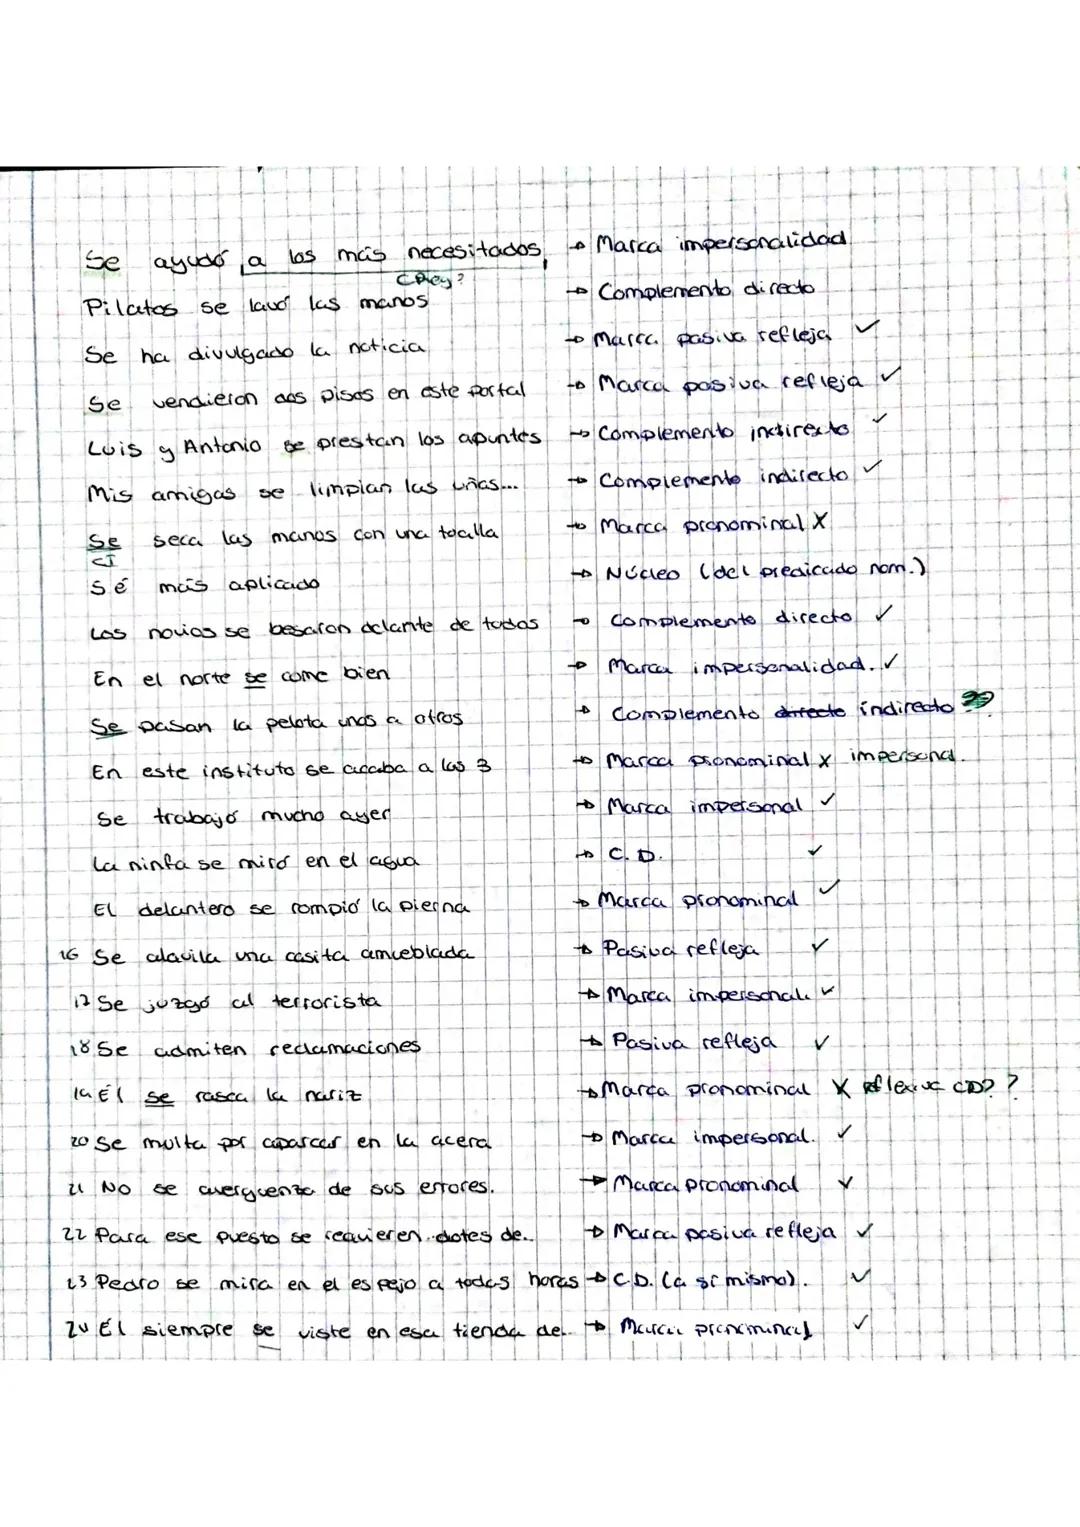 Se ayudó a los más necesitados → Marca impersonalidad
CRey?
Pilatos se lavó las manos → Complemento directo
Se ha divulgado la noticia → Marca pasiva refleja ✓
Se vendieron dos pisos en este portal → Marca pasiva refleja ✓
Luis y Antonio se prestan los apuntes → Complemento indirecto ✓
Mis amigas se limpian las uñas... → Complemento indirecto ✓
Se seca las manos con una toalla → Marca pronominal X
CI
Sé más aplicado → Núcleo (del predicado nom.)
Los novios se besaron delante de todos → Complemento directo ✓
En el norte se come bien → Marca impersonalidad. ✓
Se pasan la pelota unos a otros → Complemento directo indirecto
En este instituto se acaba a las 3 → Marca pronominal X impersonal.
Se trabajó mucho ayer → Marca impersonal ✓
La ninfa se miró en el agua → C.D. ✓
El delantero se rompió la pierna → Marca pronominal ✓
16 Se alquila una casita amueblada → Pasiva refleja ✓
17 Se juzgó al terrorista → Marca impersonal. ✓
18 Se admiten reclamaciones → Pasiva refleja ✓
19 Él se rasca la nariz → Marca pronominal X reflexiva CD? ?
20 Se multa por aparcar en la acera → Marca impersonal. ✓
21 No se avergüenza de sus errores. → Marca pronominal ✓
22 Para ese puesto se requieren dotes de.. → Marca pasiva refleja ✓
23 Pedro se mira en el espejo a todas horas → C.D. (a sí mismo). ✓
24 Él siempre se viste en esa tienda de.. → Marca pronominal ✓